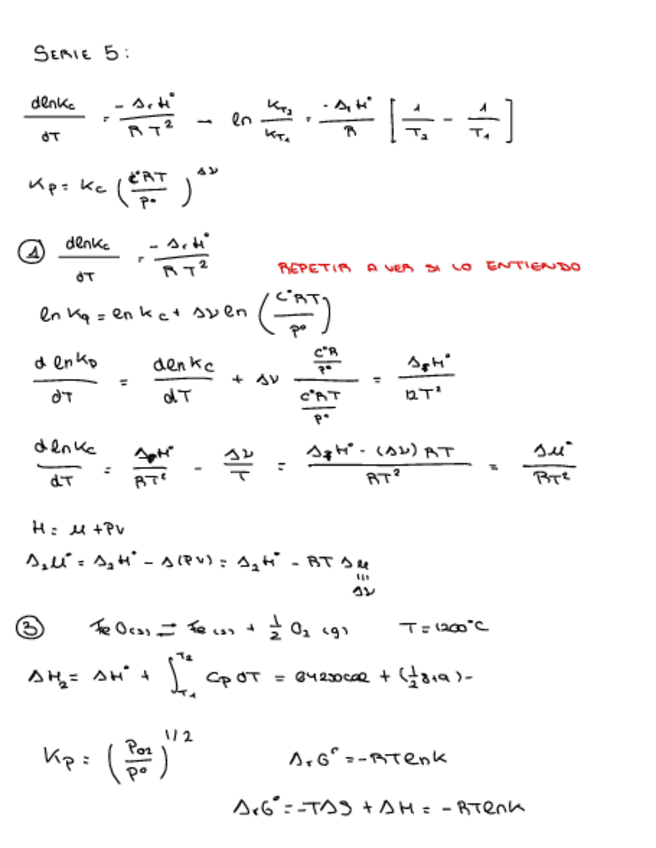 SERIE 5:
dlnKc/dT = -ΔrH°/RT² → ln KT2/KT1 = -ΔrH°/R [1/T2 - 1/T1]
Kp = Kc (C°RT/P°)^Δν
① dlnKc/dT = -ΔrH°/RT²
REPETIR A VER SI LO ENTIENDO
ln Kp = ln Kc + Δν ln (C°RT/P°)
d ln Kp/dT = d ln Kc/dT + Δν (C°R/P°)/(C°RT/P°) = ΔrH°/RT²
d ln Kc/dT = ΔrH°/RT² - Δν/T = (ΔrH° - (Δν) RT)/RT² = Δu°/RT²
H = u + PV
Δru° = ΔrH° - Δ(PV) = ΔrH° - RT Δn
≡
Δν
③ FeO(s) ⇌ Fe(s) + 1/2 O2 (g) T = 1200°C
ΔH2 = ΔH° + ∫T1^T2 Cp dT = 64200cal + (1/2
Kp = (PO2/P°)^1/2 ΔrG° = -RTlnK
ΔrG° = -TΔS + ΔH = -RTlnK